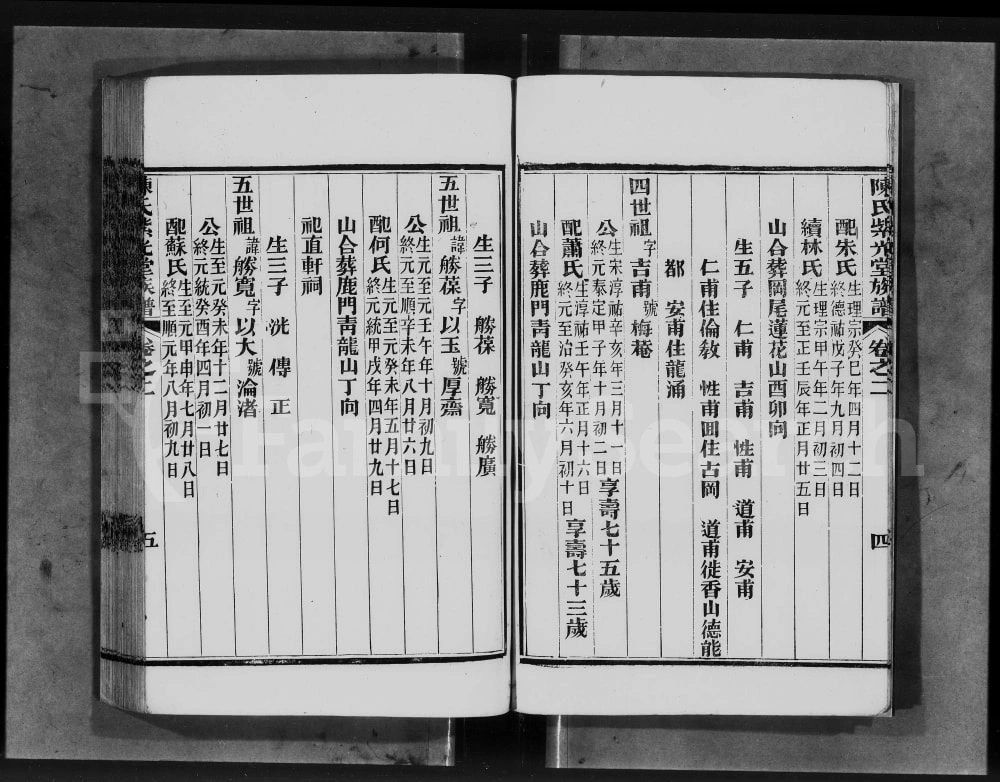 陳氏紫光堂族譜 卷之二 四
配朱氏 生理宗癸巳年四月十二日 終德祐戊子年九月初四日
續林氏 生理宗甲午年二月初三日 終元至正壬辰年正月廿五日
山合葬岡尾蓮花山酉卯向
生五子 仁甫 吉甫 性甫 道甫 安甫
仁甫住倫敎 性甫回住古岡 道甫徙香山德能
都 安甫住龍涌
四世祖字吉甫號梅菴
公 生宋淳祐辛亥年三月十一日 終元泰定甲子年十月初二日 享壽七十五歲
配蕭氏 生淳祐壬午年正月十六日 終元至治癸亥年六月初十日 享壽七十三歲
山合葬鹿門靑龍山丁向
生三子 勝葆 勝寬 勝廣
五世祖諱勝葆字以玉號厚齋
公 生元至元壬午年十月初九日 終元至順辛未年八月廿六日
配何氏 生元至元癸未年五月十七日 終元統甲戌年四月廿九日
山合葬鹿門靑龍山丁向
祀直軒祠
生三子 洸 傳 正
五世祖諱勝寬字以大號淪渚
公 生至元癸未年十二月廿七日 終元統癸酉年四月初一日
配蘇氏 生至元甲申年七月廿八日 終至順元年八月初九日
陳氏紫光堂族譜 卷之二 五
FamilySearch